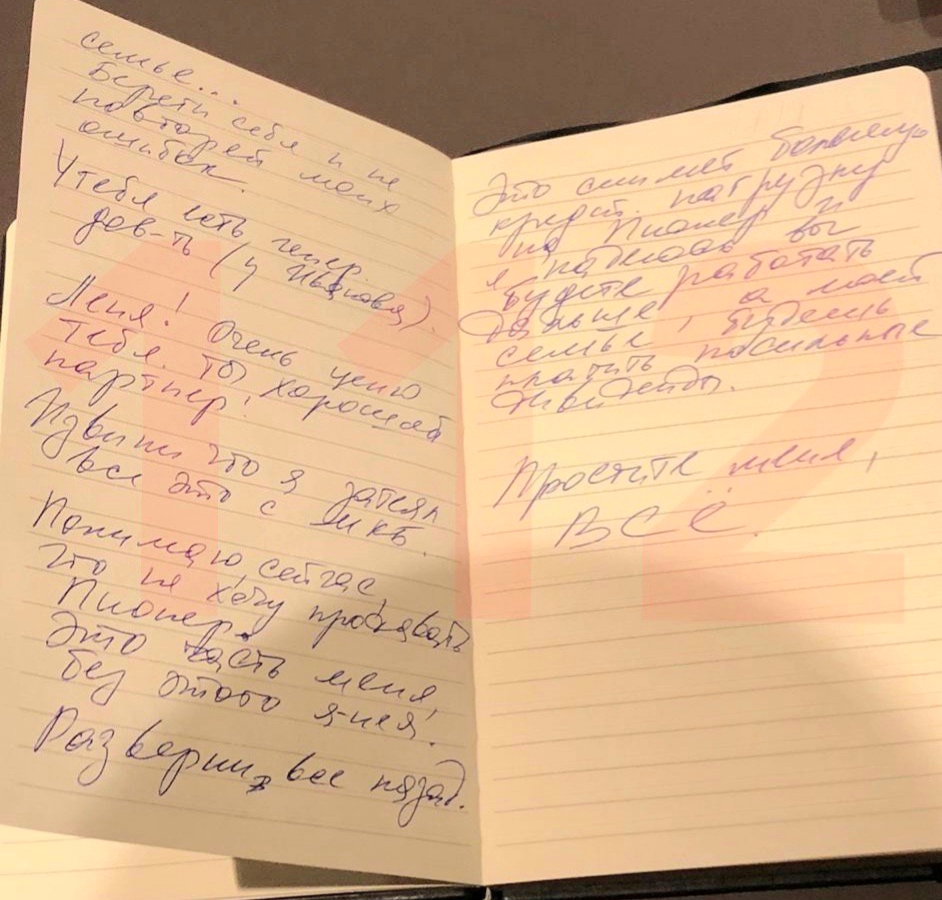 семье...
Береги себя и не
повторяй моих
ошибок.
У тебя есть генер.
дов-ть (у Иванова).
Леня! Очень ценю
тебя. ты хороший
партнер!
Извини что я затеял
все это с МКБ.
Понимаю сейчас,
что не хочу продавать
Пионер.
Это часть меня,
без этого я-не я!
Разверни все назад.
Это снимет большую
кредит. нагрузку
на Пионер и
я надеюсь вы
будете работать
дальше, а моей
семье, будешь
платить посильные
дивиденды.
Простите меня,
ВСЁ.
112